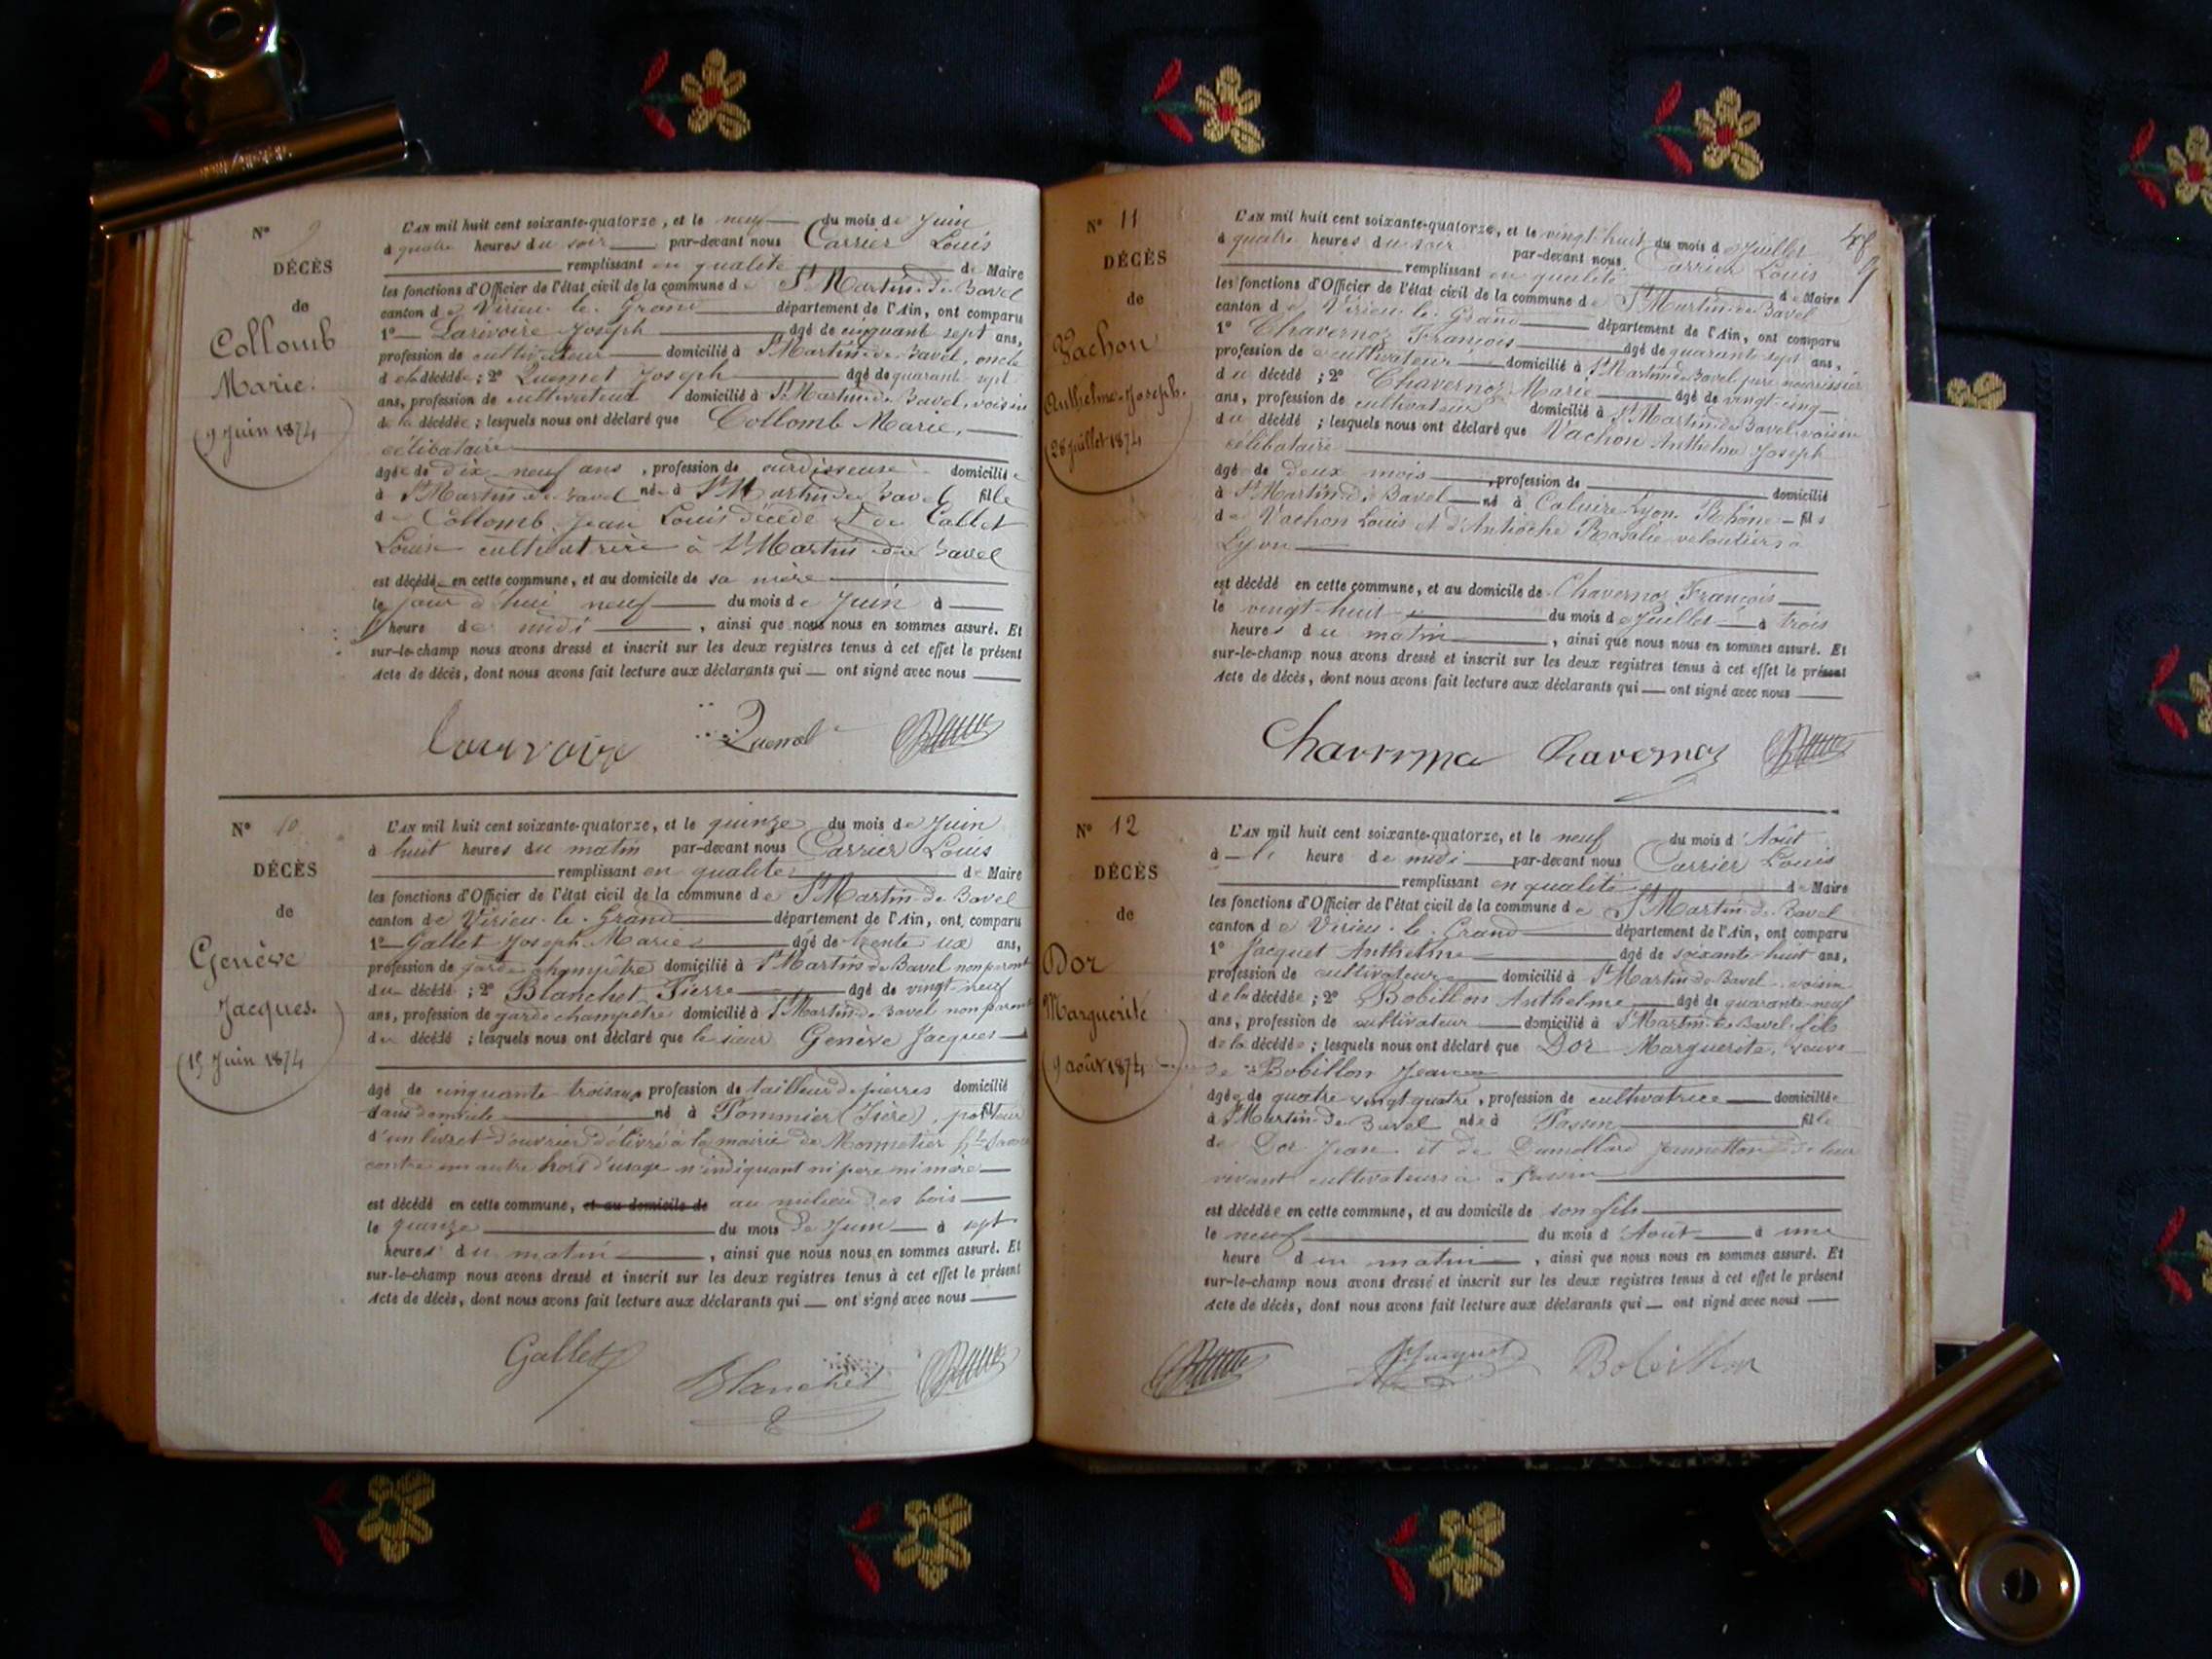 N° 9
DÉCÈS
de
Collomb
Marie.
9 Juin 1874
L'AN mil huit cent soixante-quatorze, et le neuf du mois de Juin
à quatre heures du soir par-devant nous Carrier Louis
remplissant en qualité de Maire
les fonctions d'Officier de l'état civil de la commune de St Martin de Bavel
canton de Virieu le Grand département de l'Ain, ont comparu
1° Larivoire Joseph âgé de cinquant sept ans,
profession de cultivateur domicilié à St Martin de Bavel, oncle
de la décédée ; 2° Quemet Joseph âgé de quarant sept
ans, profession de cultivateur domicilié à St Martin de Bavel, voisin
de la décédée ; lesquels nous ont déclaré que Collomb Marie,
célibataire
âgée de dix neuf ans , profession de ourdisseuse domiciliée
à St Martin de Bavel née à St Martin de Bavel fille
de Collomb Jean Louis décédé et de Callet
Louise cultivatrice à St Martin de Bavel
est décédée en cette commune, et au domicile de sa mère
le jour d'hui neuf du mois de Juin à
heure de midi , ainsi que nous nous en sommes assuré. Et
sur-le-champ nous avons dressé et inscrit sur les deux registres tenus à cet effet le présent
Acte de décès, dont nous avons fait lecture aux déclarants qui ont signé avec nous
N° 10
DÉCÈS
de
Genève
Jacques.
15 Juin 1874
L'AN mil huit cent soixante-quatorze, et le quinze du mois de Juin
à huit heures du matin par-devant nous Carrier Louis
remplissant en qualité de Maire
les fonctions d'Officier de l'état civil de la commune de St Martin de Bavel
canton de Virieu le Grand département de l'Ain, ont comparu
1° Gallet Joseph Marie âgé de trente ans,
profession de garde champêtre domicilié à St Martin de Bavel non parent
du décédé ; 2° Blanchet Pierre âgé de vingt neuf
ans, profession de garde champêtre domicilié à St Martin de Bavel non parent
du décédé ; lesquels nous ont déclaré que le sieur Genève Jacques
âgé de cinquante trois ans profession de tailleur de pierres domicilié
sans domicile né à Pommier (Isère), fil porteur
d'un livret d'ouvrier délivré à la mairie de Monnetier Hte Savoie
contre un autre hors d'usage n'indiquant ni père ni mère
est décédé en cette commune, et au domicile de au milieu des bois
le quinze du mois de Juin à sept
heures du matin , ainsi que nous nous en sommes assuré. Et
sur-le-champ nous avons dressé et inscrit sur les deux registres tenus à cet effet le présent
Acte de décès, dont nous avons fait lecture aux déclarants qui ont signé avec nous
Gallet Blanchet
N° 11
DÉCÈS
de
Vachon
Anthelme Joseph.
28 Juillet 1874
L'AN mil huit cent soixante-quatorze, et le vingt huit du mois de Juillet
à quatre heures du soir par-devant nous Carrier Louis
remplissant en qualité de Maire
les fonctions d'Officier de l'état civil de la commune de St Martin de Bavel
canton de Virieu le Grand département de l'Ain, ont comparu
1° Chavernoz François âgé de quarant sept ans,
profession de cultivateur domicilié à St Martin de Bavel père nourrissier
du décédé ; 2° Chavernoz Marie âgé de vingt-cinq
ans, profession de cultivateur domicilié à St Martin de Bavel voisin
du décédé ; lesquels nous ont déclaré que Vachon Anthelme Joseph
célibataire
âgé de deux mois , profession de domicilié
à St Martin de Bavel né à Caluire Lyon Rhône fils
de Vachon Louis et d'Antioche Rosalie veloutiers à
Lyon
est décédé en cette commune, et au domicile de Chavernoz François
le vingt-huit du mois de Juillet à trois
heures du matin , ainsi que nous nous en sommes assuré. Et
sur-le-champ nous avons dressé et inscrit sur les deux registres tenus à cet effet le présent
Acte de décès, dont nous avons fait lecture aux déclarants qui ont signé avec nous
Chavernoz
N° 12
DÉCÈS
de
Dor
Marguerite
9 août 1874
L'AN mil huit cent soixante-quatorze, et le neuf du mois d'Août
à heure de midi par-devant nous Carrier Louis
remplissant en qualité de Maire
les fonctions d'Officier de l'état civil de la commune de St Martin de Bavel
canton de Virieu le Grand département de l'Ain, ont comparu
1° Jacquet Anthelme âgé de soixante-huit ans,
profession de cultivateur domicilié à St Martin de Bavel, voisin
de la décédée ; 2° Bobillon Anthelme âgé de quarante-neuf
ans, profession de cultivateur domicilié à St Martin de Bavel, fils
de la décédée ; lesquels nous ont déclaré que Dor Marguerite, veuve
de Bobillon Jean
âgée de quatre vingt quatre , profession de cultivatrice domiciliée
à St Martin de Bavel née à Passin fille
de Dor Jean et de Dumollard Jeannetton de leur
vivant cultivateurs à Passin
est décédée en cette commune, et au domicile de son fils
le neuf du mois d'Août à une
heure du matin , ainsi que nous nous en sommes assuré. Et
sur-le-champ nous avons dressé et inscrit sur les deux registres tenus à cet effet le présent
Acte de décès, dont nous avons fait lecture aux déclarants qui ont signé avec nous
Jacquet Bobillon